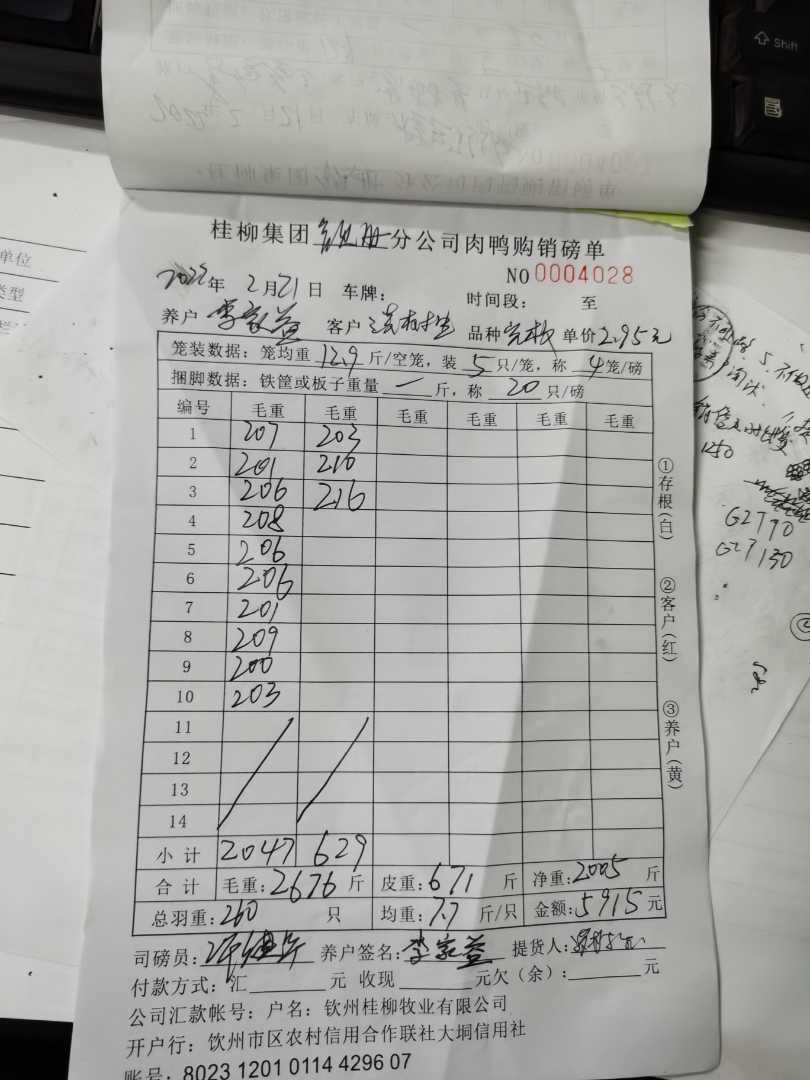 Shift
单位
类型
桂柳集团 钦州 分公司肉鸭购销磅单
NO 0004028
2022年 2月21日 车牌: 时间段: 至
养户 李家益 客户 品种 单价2.95元
笼装数据: 笼均重 12.9 斤/空笼, 装 5 只/笼, 称 4 笼/磅
捆脚数据: 铁筐或板子重量 一 斤, 称 20 只/磅
编号 毛重 毛重 毛重 毛重 毛重 毛重
1 207 203
2 201 210
3 206 216
4 208
5 206
6 206
7 201
8 209
9 200
10 203
11
12
13
14
小计 2047 629
合计 毛重:2676 斤 皮重:671 斤 净重:2005 斤
总羽重:260 只 均重:7.7 斤/只 金额:5915 元
司磅员: 养户签名:李家益 提货人:
付款方式:汇 元 收现 元欠(余): 元
公司汇款帐号: 户名: 钦州桂柳牧业有限公司
开户行: 钦州市区农村信用合作联社大垌信用社
账号: 8023 1201 0114 4296 07
①存根(白)
②客户(红)
③养户(黄)
1250